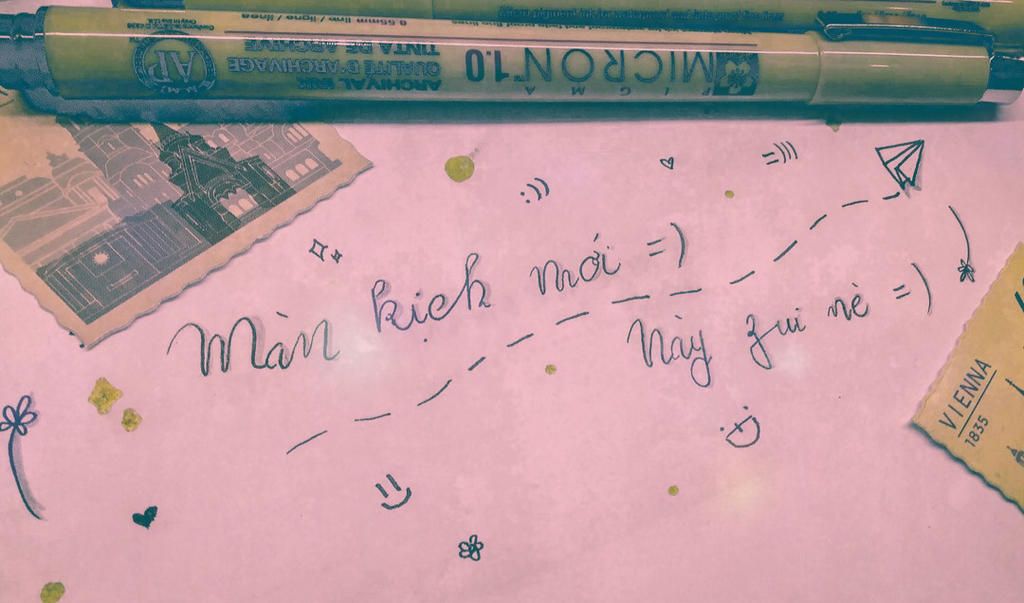 MICRON® 1.0
PIGMA
ARCHIVAL INK
QUALITÉ D'ARCHIVAGE
TINTA DE ARCHIVE
AP
Màn kịch mới =)
Này zui nè =)
:))
=)))
VIENNA
1835